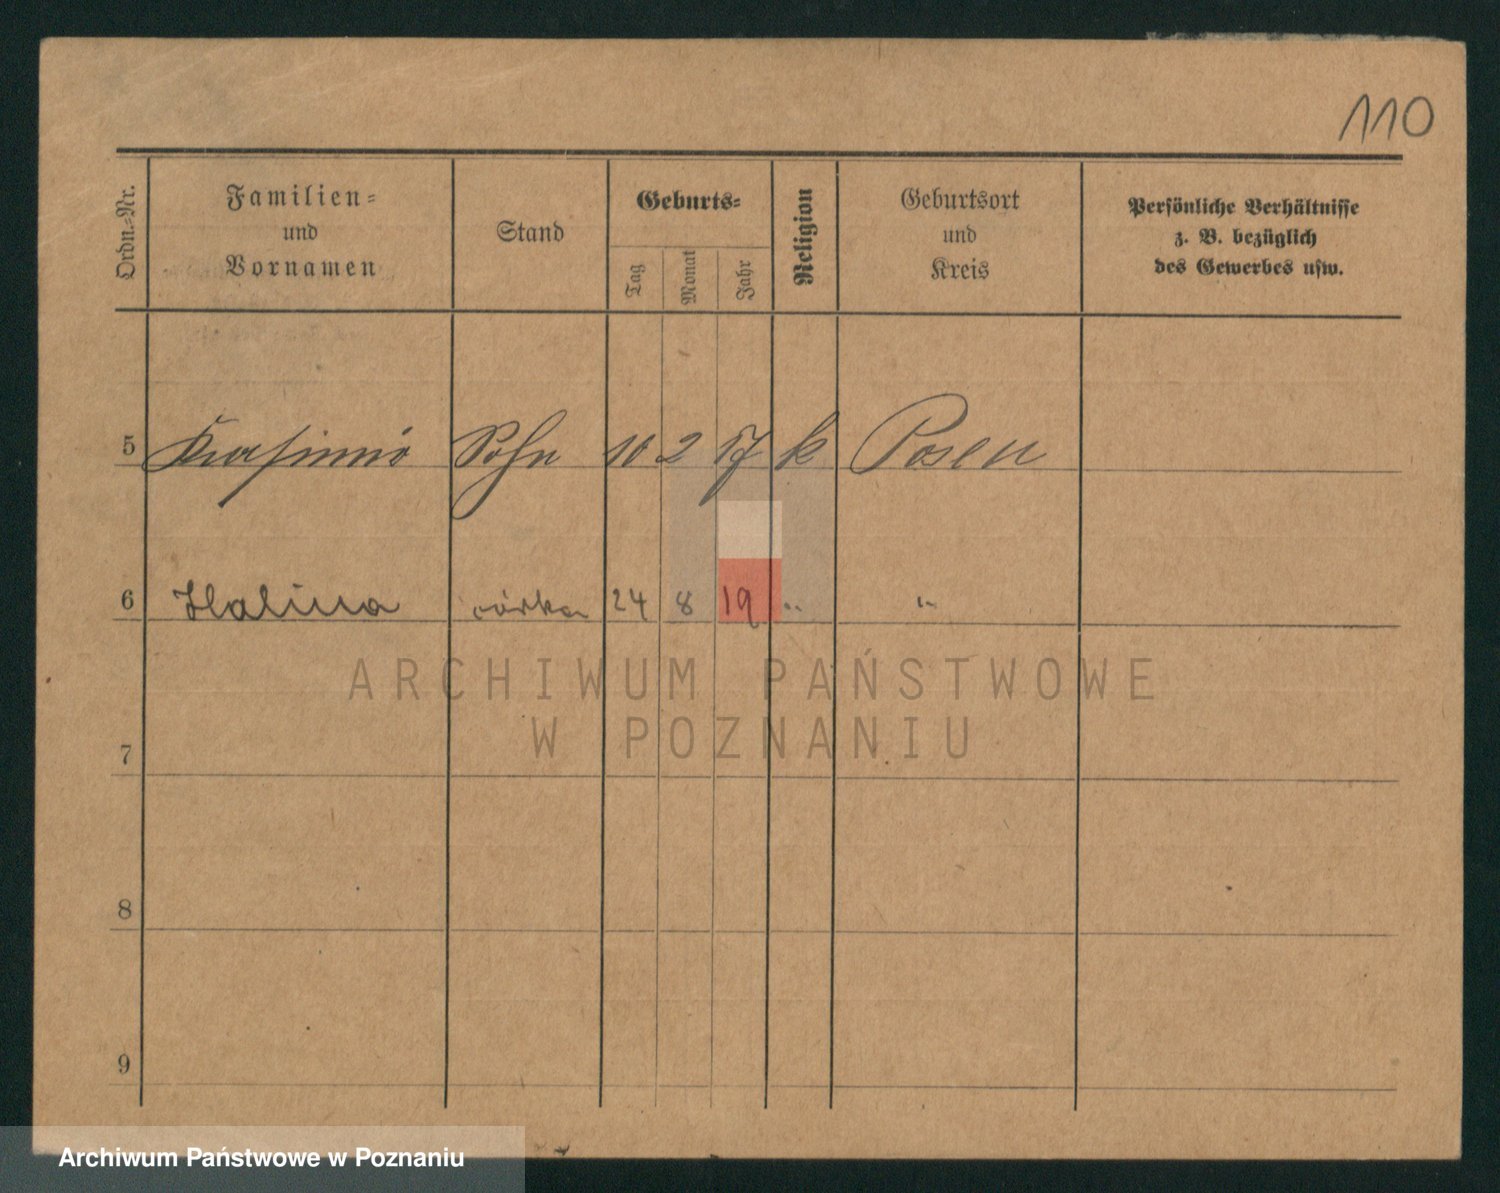 110
Ordn.=Nr.
Familien=
und
Vornamen
Stand
Geburts=
Tag
Monat
Jahr
Religion
Geburtsort
und
Kreis
Persönliche Verhältnisse
z. B. bezüglich
des Gewerbes usw.
5 Kasimir Sohn 10 2 17 k Posen
6 Halina córka 24 8 19 " "
ARCHIWUM PAŃSTWOWE
W POZNANIU
7
8
9
Archiwum Państwowe w Poznaniu